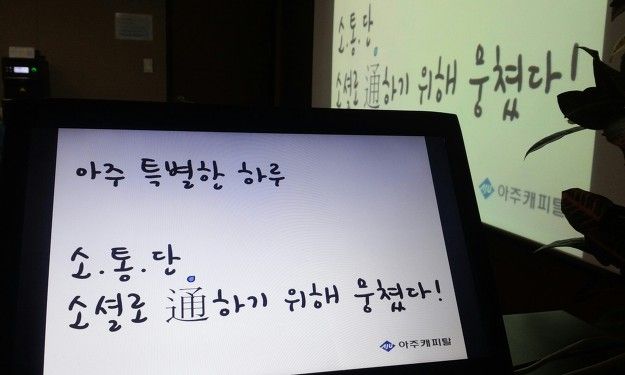 아주 특별한 하루
소.통.단.
소셜로 通하기 위해 뭉쳤다!
아주캐피탈
소.통.단.
소셜로 通하기 위해 뭉쳤다!
아주캐피탈